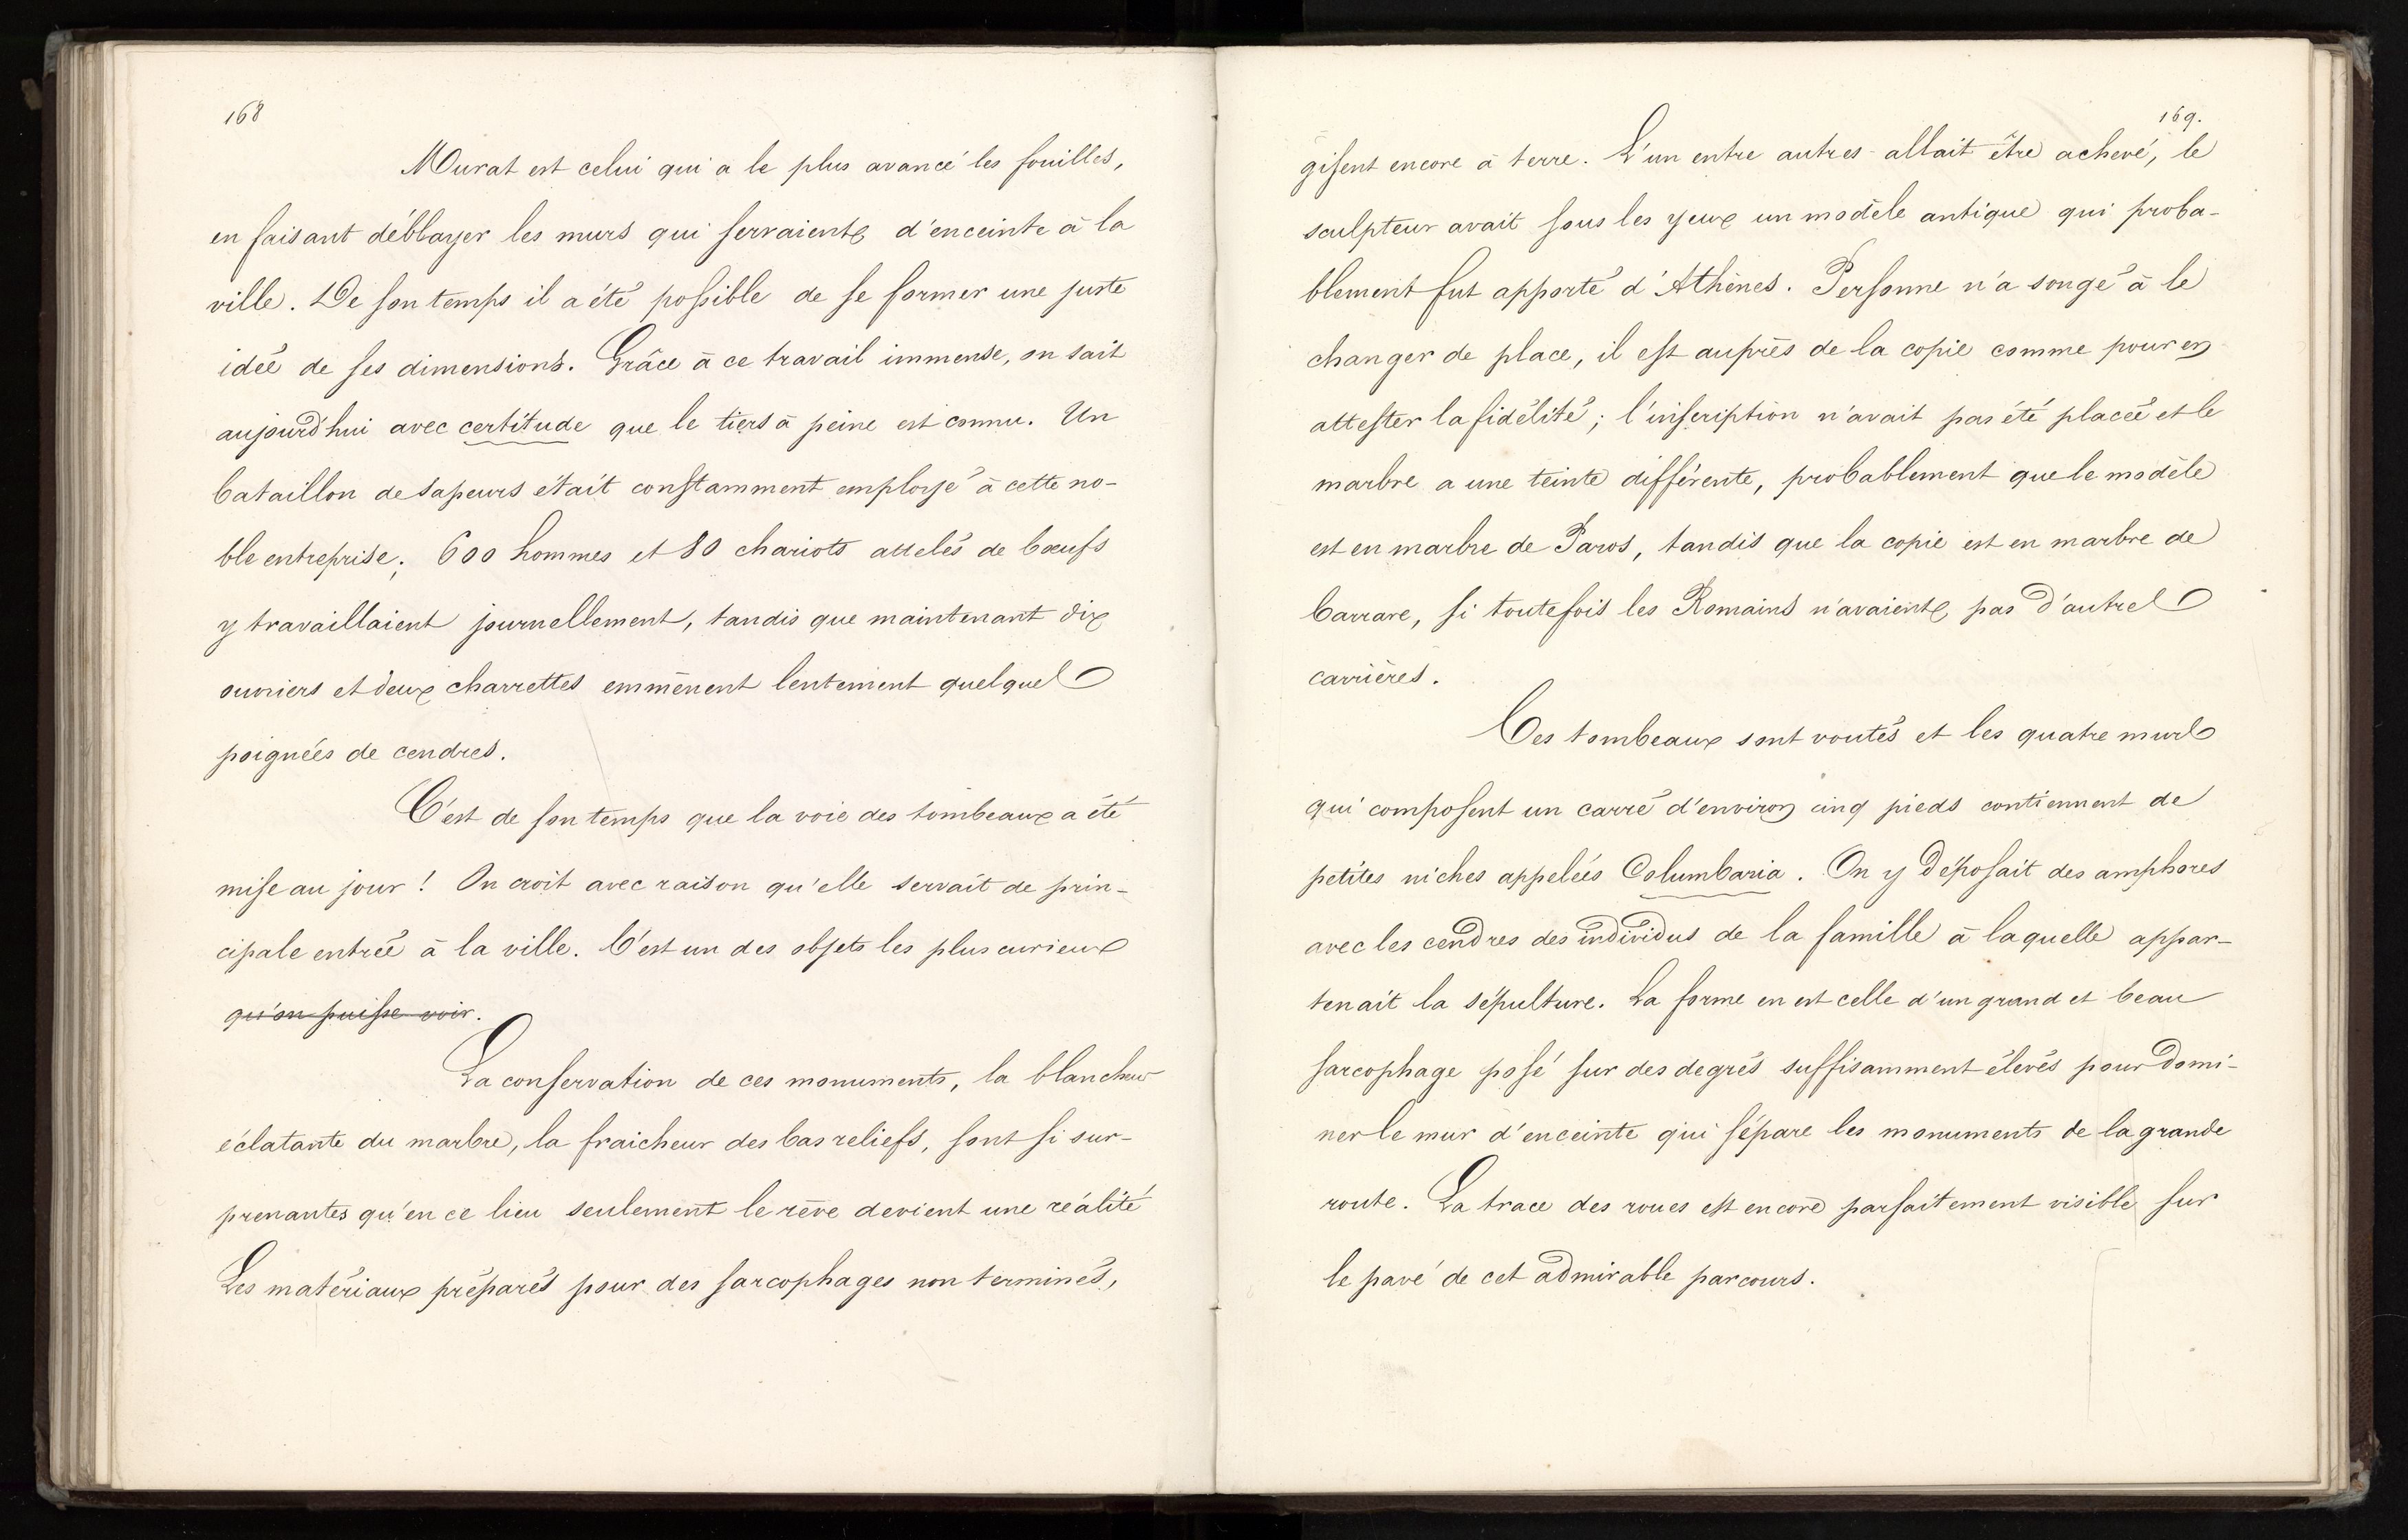 168
Murat est celui qui a le plus avancé les fouilles,
en faisant déblayer les murs qui servaient d'enceinte à la
ville. De son temps il a été possible de se former une juste
idée de ses dimensions. Grâce à ce travail immense, on sait
aujourd'hui avec certitude que le tiers à peine est connu. Un
bataillon de sapeurs était constamment employé à cette no-
ble entreprise; 600 hommes et 80 chariots attelés de bœufs
y travaillaient journellement, tandis que maintenant dix
ouvriers et deux charrettes emmènent lentement quelques
poignées de cendres.
C'est de son temps que la voie des tombeaux a été
mise au jour! On croit avec raison qu'elle servait de prin-
cipale entrée à la ville. C'est un des objets les plus curieux
qu'on puisse voir.
La conservation de ces monuments, la blancheur
éclatante du marbre, la fraicheur des bas reliefs, sont si sur-
prenantes qu'en ce lieu seulement le rêve devient une réalité
Les matériaux préparés pour des sarcophages non terminés,
169.
gisent encore à terre. L'un entre autres allait être achevé, le
sculpteur avait sous les yeux un modèle antique qui proba-
blement fut apporté d'Athènes. Personne n'a songé à le
changer de place, il est auprès de la copie comme pour en
attester la fidélité; l'inscription n'avait pas été placée et le
marbre a une teinte différente, probablement que le modèle
est en marbre de Paros, tandis que la copie est en marbre de
Carrare, si toutefois les Romains n'avaient pas d'autres
carrières.
Ces tombeaux sont voutés et les quatre murs
qui composent un carré d'environ cinq pieds contiennent de
petites niches appelées Columbaria. On y déposait des amphores
avec les cendres des individus de la famille à laquelle appar-
tenait la sépulture. La forme en est celle d'un grand et beau
sarcophage posé sur des degrés suffisamment élevés pour domi-
ner le mur d'enceinte qui sépare les monuments de la grande
route. La trace des roues est encore parfaitement visible sur
le pavé de cet admirable parcours.